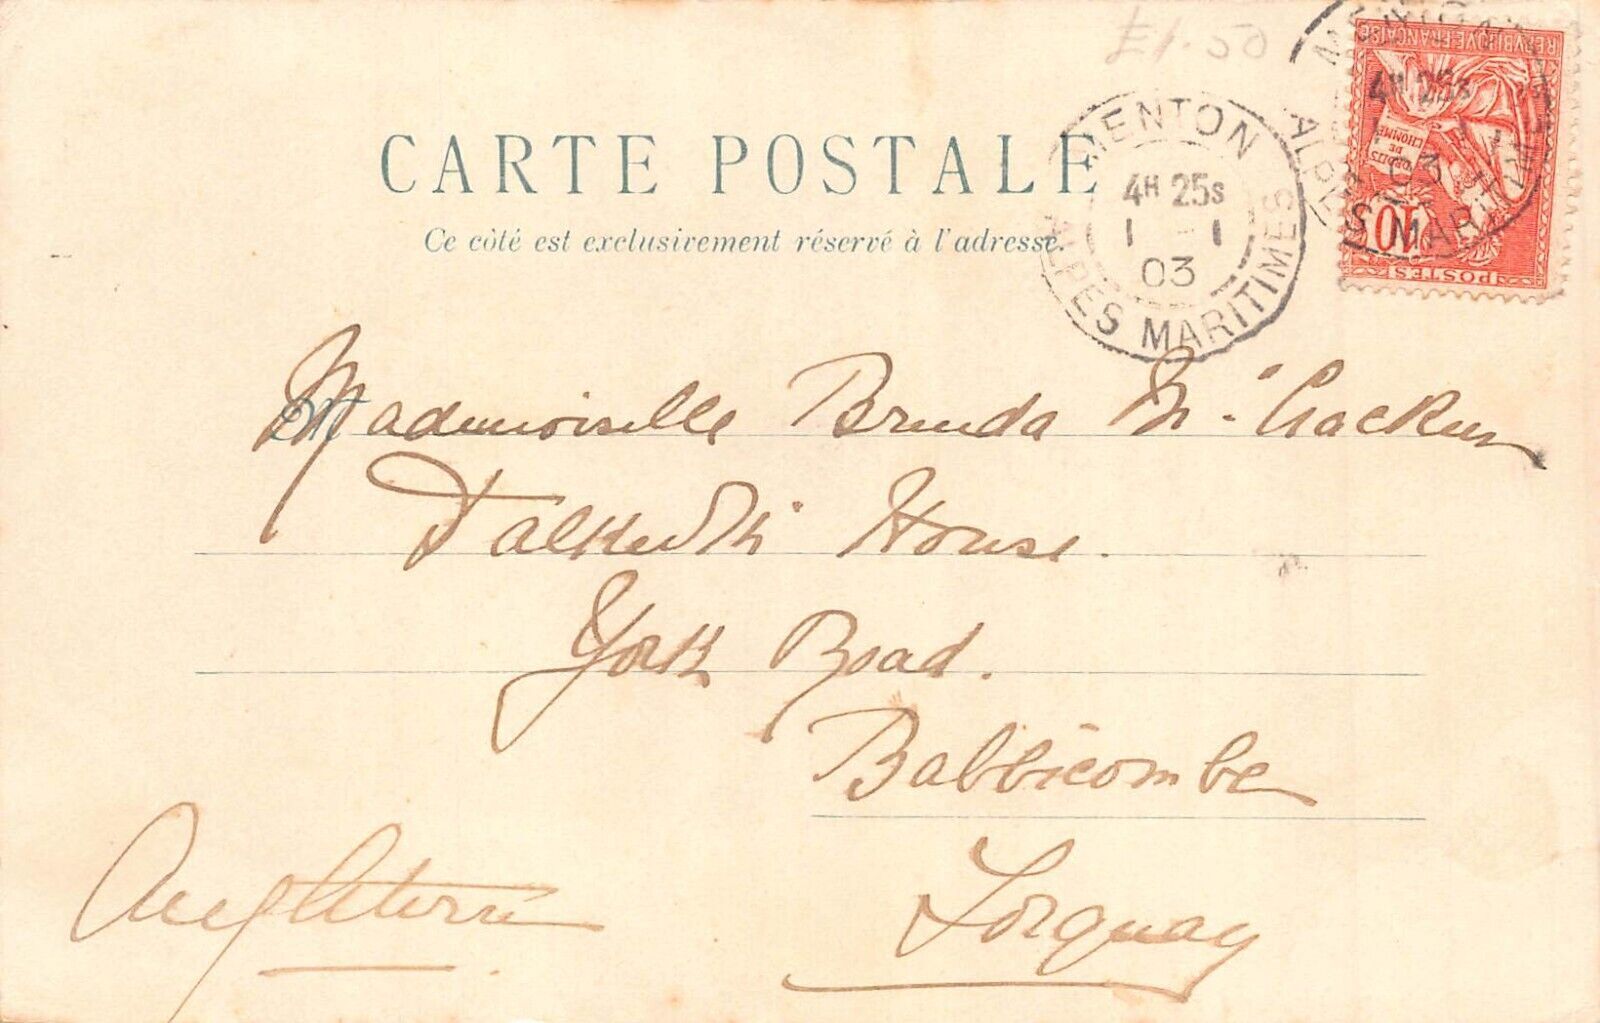 £1.50
CARTE POSTALE
Ce côté est exclusivement réservé à l'adresse.
MENTON
4H 25S
1 - 1
03
ALPES MARITIMES
MENTON
4H 25S
1 - 1
03
ALPES MARITIMES
REPVBLIQVE FRANÇAISE
DROITS
DE
L'HOMME
10
POSTES
M
Mademoiselle Brenda Mc Cracken
House.
York Road.
Babbicombe
Torquay
Angleterre